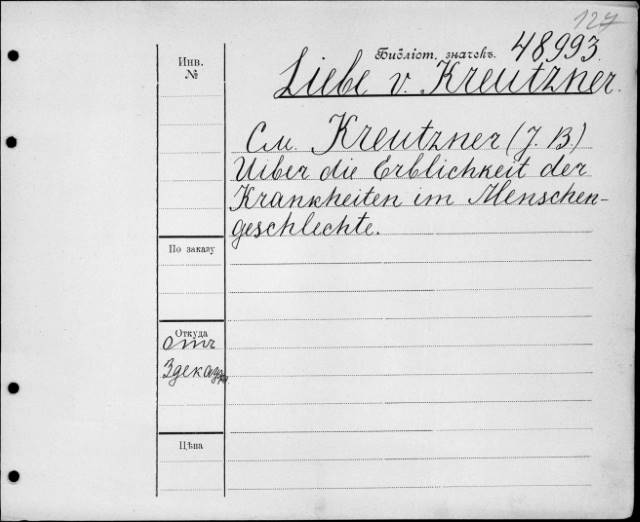 127
Библіот. значекъ. 48993.
Инв.
№
Liebe v. Kreutzner.
См. Kreutzner (J. B.)
Uiber die Erblichkeit der
Krankheiten im Menschen-
geschlechte.
По заказу
Откуда
отъ
Цѣна